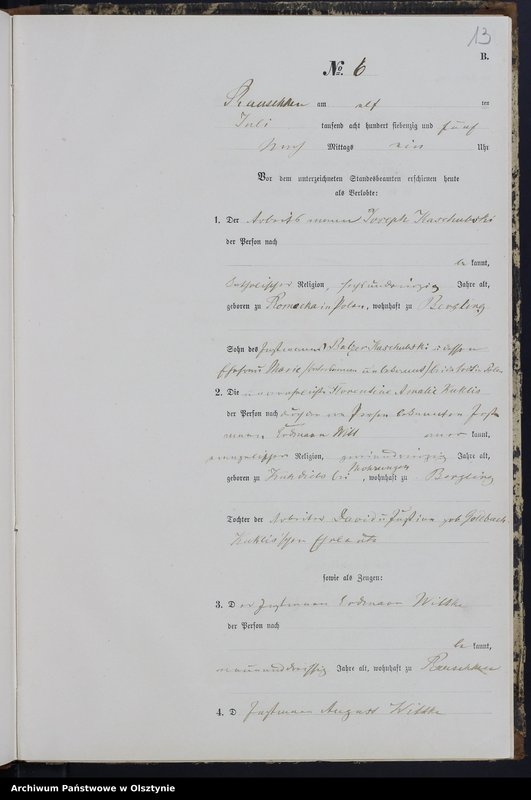 13
B.
No. 6
Rauschken am elf ten
Juli tausend acht hundert siebenzig und fünf
Nach Mittags ein Uhr
Vor dem unterzeichneten Standesbeamten erschienen heute
als Verlobte:
1. Der Arbeitsmann Joseph Kaschubski
der Person nach
be kannt,
katholischer Religion, sechsundvierzig Jahre alt,
geboren zu in Polen, wohnhaft zu Bergling
Sohn des Instmann Balzer Kaschubski dessen
Ehefrau Marie in Polen
2. Die unverehelichte Florentine Amalie Kuklis
der Person nach durch den Person bekannten Inst
mann Erdmann Witt aner kannt,
evangelischer Religion, Jahre alt,
Mohrungen
geboren zu bei, wohnhaft zu Bergling
Tochter der Arbeiter David u Justine geb Goldbach
Kuklis'schen Eheleute
sowie als Zeugen:
3. Der Instmann Erdmann Wittke
der Person nach
be kannt,
neununddreissig Jahre alt, wohnhaft zu Rauschken
4. D Instmann August Wittke
Archiwum Państwowe w Olsztynie